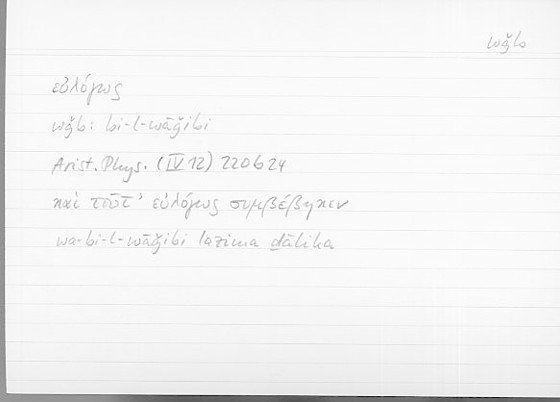 wǧb
εὐλόγως
wǧb: bi-l-wāǧibi
Arist. Phys. (IV 12) 220b24
καὶ τοῦτ’ εὐλόγως συμβέβηκεν
wa-bi-l-wāǧibi lazima ḏālika